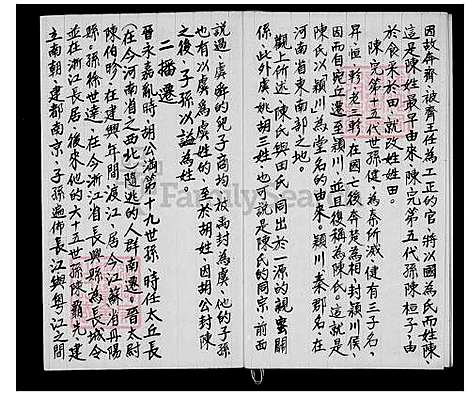 因故奔齊,被齊王任為工正的官,將以國為氏而姓陳,
這是陳姓最早由來,陳完第五代孫陳桓子,由
於食采於田,就改姓姓田。
陳完第十五代世孫健,為秦所滅,健有三子名,
昇,恒,軫,老三軫在國亡後奔楚為相,封潁川侯,
因而自宛丘遷至潁川,並且復稱為陳氏。這就是
陳氏以潁川為堂名的由來。潁川秦郡名,在
河南省東南部之地。
觀上所述,陳氏與田氏,同出於一源的親蜜關
係,此外虞姚,胡三姓,也可說是陳氏的同宗,前面
說過,虞舜的兒子商均,於禹封為虞,他的子孫
也有以虞為虞姓的,至於胡姓,因胡公封陳
之後,子孫以謚為姓。
二播遷
晉永嘉亂時,胡公滿第十九世孫,時任太丘長
(在今河南省之西北)隨逃的人群南遷。晉太尉
陳伯眕在建興年間渡江,居今江蘇省丹陽
縣。孫條世達,在今浙江省長興縣為長城令
並在浙江長居,後來他的六十五世孫陳霸先,建
立南朝,建都南京,子孫遍佈長江與粤江之間
FamilySearch